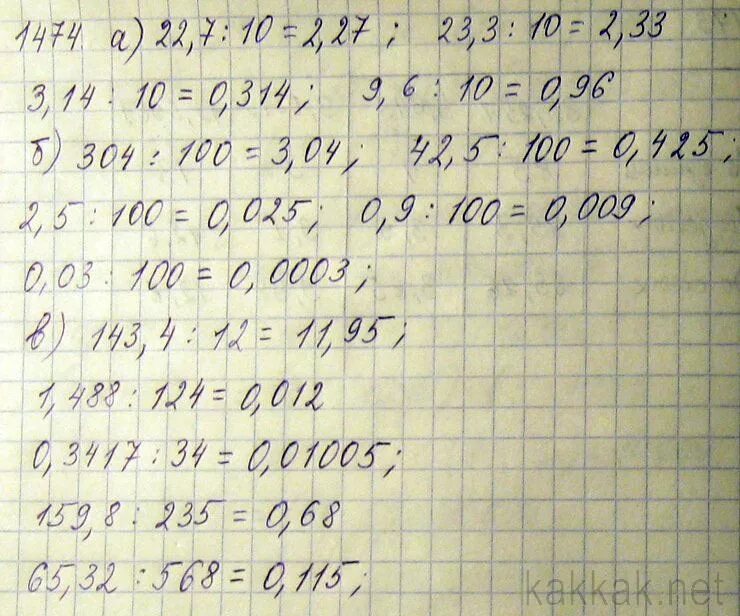 1474. а) 22,7 : 10 = 2,27 ; 23,3 : 10 = 2,33
3,14 : 10 = 0,314 ; 9,6 : 10 = 0,96
б) 304 : 100 = 3,04 ; 42,5 : 100 = 0,425 ;
2,5 : 100 = 0,025 ; 0,9 : 100 = 0,009 ;
0,03 : 100 = 0,0003 ;
в) 143,4 : 12 = 11,95 ;
1,488 : 124 = 0,012
0,3417 : 34 = 0,01005 ;
159,8 : 235 = 0,68
65,32 : 568 = 0,115 ;
kakkak.net